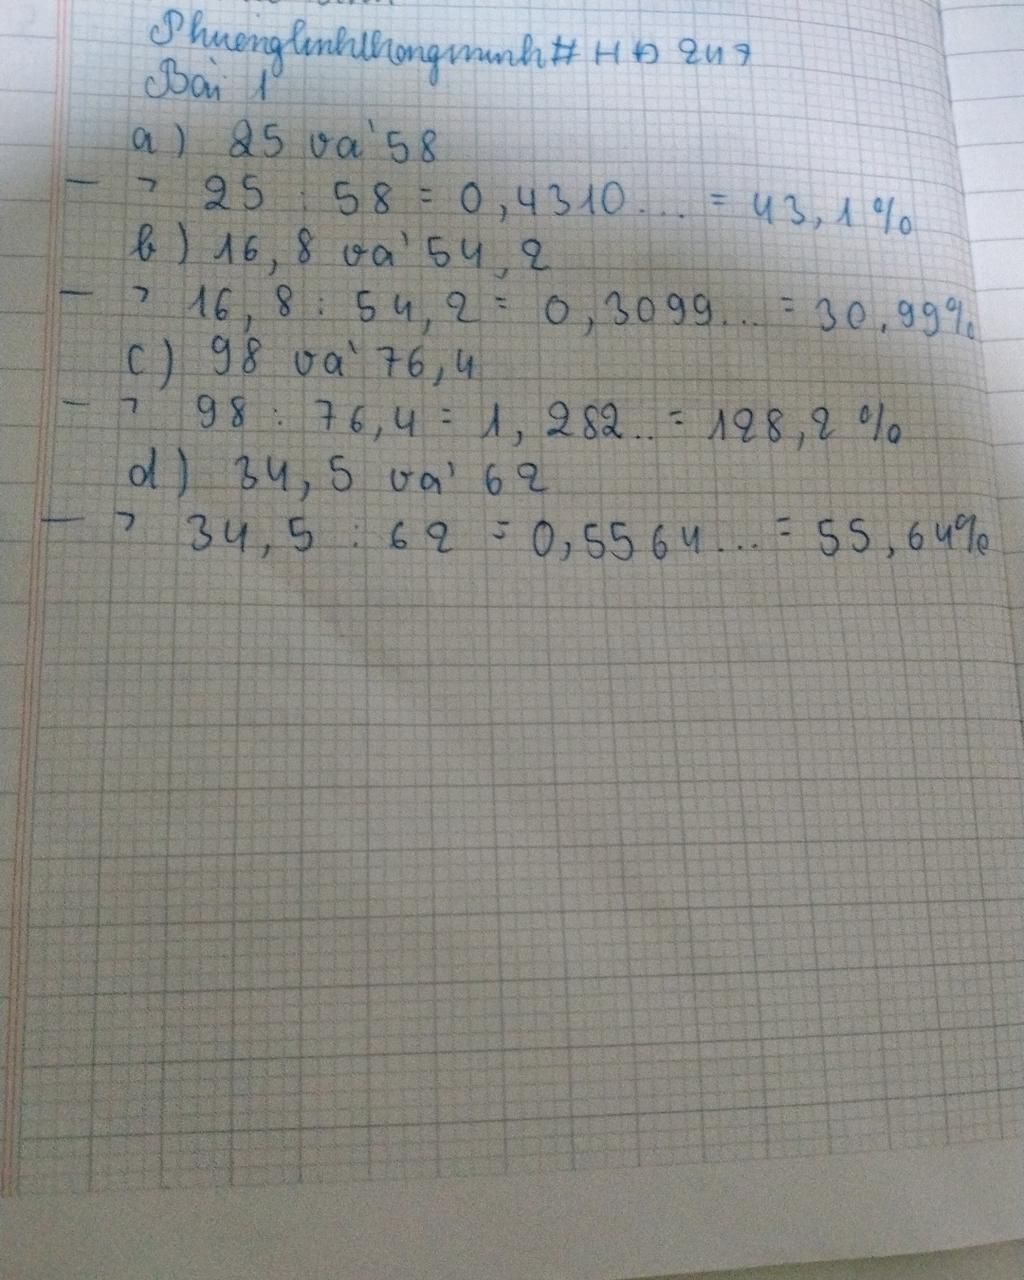 Phuenglinhthongminh# HĐ 247
Bài 1
a) 25 và 58
-> 25 : 58 = 0,4310... = 43,1%
b) 16,8 và 54,2
-> 16,8 : 54,2 = 0,3099... = 30,99%
c) 98 và 76,4
-> 98 : 76,4 = 1,282.. = 128,2 %
d) 34,5 và 62
-> 34,5 : 62 = 0,5564... = 55,64%